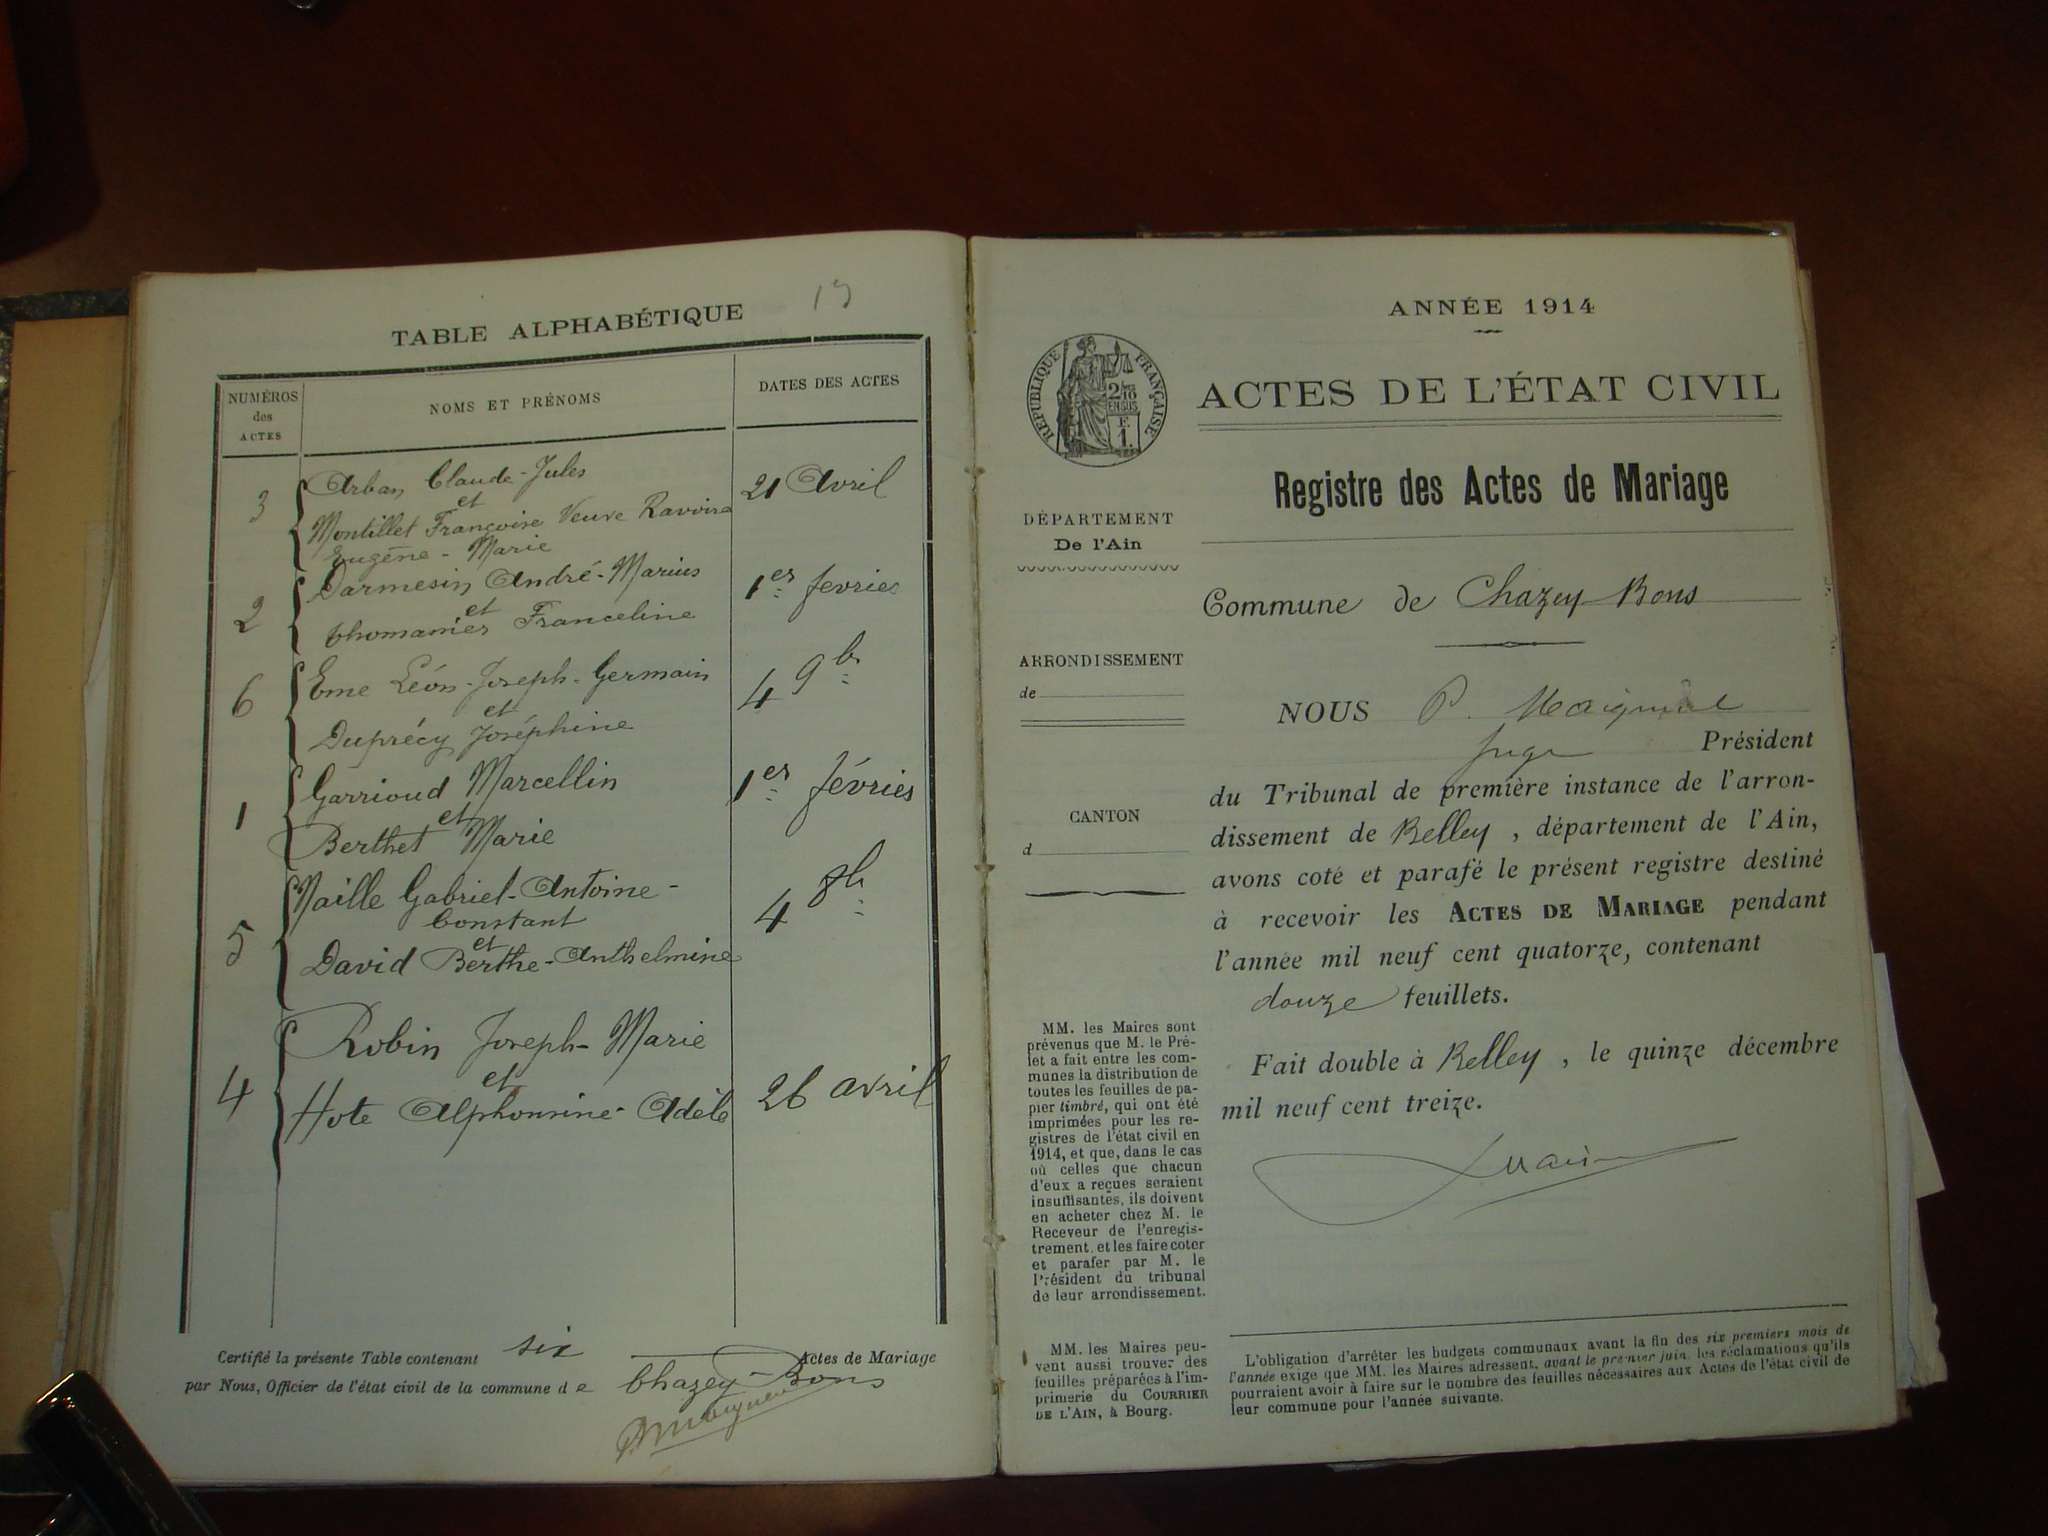 13
TABLE ALPHABÉTIQUE
NUMÉROS
des
ACTES
NOMS ET PRÉNOMS
DATES DES ACTES
3
Arban Claude-Jules
et
21 Avril
Montillet Françoise Veuve Ravoire
Eugène-Marie
2
Darmesin André-Marius
et
1er février
Thomanier Franceline
6
Eme Léon-Joseph-Germain
et
4 9bre
Duprécy Joséphine
1
Garrioud Marcellin
et
1er février
Berthet Marie
5
Naille Gabriel-Antoine-
Constant
et
4 8bre
David Berthe-Anthelmine
4
Robin Joseph-Marie
et
Hote Alphonsine-Adèle
26 avril
Certifié la présente Table contenant six Actes de Mariage
par Nous, Officier de l'état civil de la commune de Chazey-Bons
ANNÉE 1914
RÉPUBLIQUE FRANÇAISE
ACTES DE L'ÉTAT CIVIL
Registre des Actes de Mariage
DÉPARTEMENT
De l'Ain
Commune de Chazey Bons
ARRONDISSEMENT
de
CANTON
d
NOUS P.
Juge Président
du Tribunal de première instance de l'arron-
dissement de Belley, département de l'Ain,
avons coté et parafé le présent registre destiné
à recevoir les ACTES DE MARIAGE pendant
l'année mil neuf cent quatorze, contenant
douze feuillets.
Fait double à Belley, le quinze décembre
mil neuf cent treize.
MM. les Maires sont
prévenus que M. le Pré-
fet a fait entre les com-
munes la distribution de
toutes les feuilles de pa-
pier timbré, qui ont été
imprimées pour les re-
gistres de l'état civil en
1914, et que, dans le cas
où celles que chacun
d'eux a reçues seraient
insuffisantes, ils doivent
en acheter chez M. le
Receveur de l'enregis-
trement, et les faire coter
et parafer par M. le
Président du tribunal
de leur arrondissement.
MM. les Maires peu-
vent aussi trouver des
feuilles préparées à l'im-
primerie du COURRIER
DE L'AIN, à Bourg.
L'obligation d'arrêter les budgets communaux avant la fin des six premiers mois de
l'année exige que MM. les Maires adressent, avant le premier juin, les réclamations qu'ils
pourraient avoir à faire sur le nombre des feuilles nécessaires aux Actes de l'état civil de
leur commune pour l'année suivante.